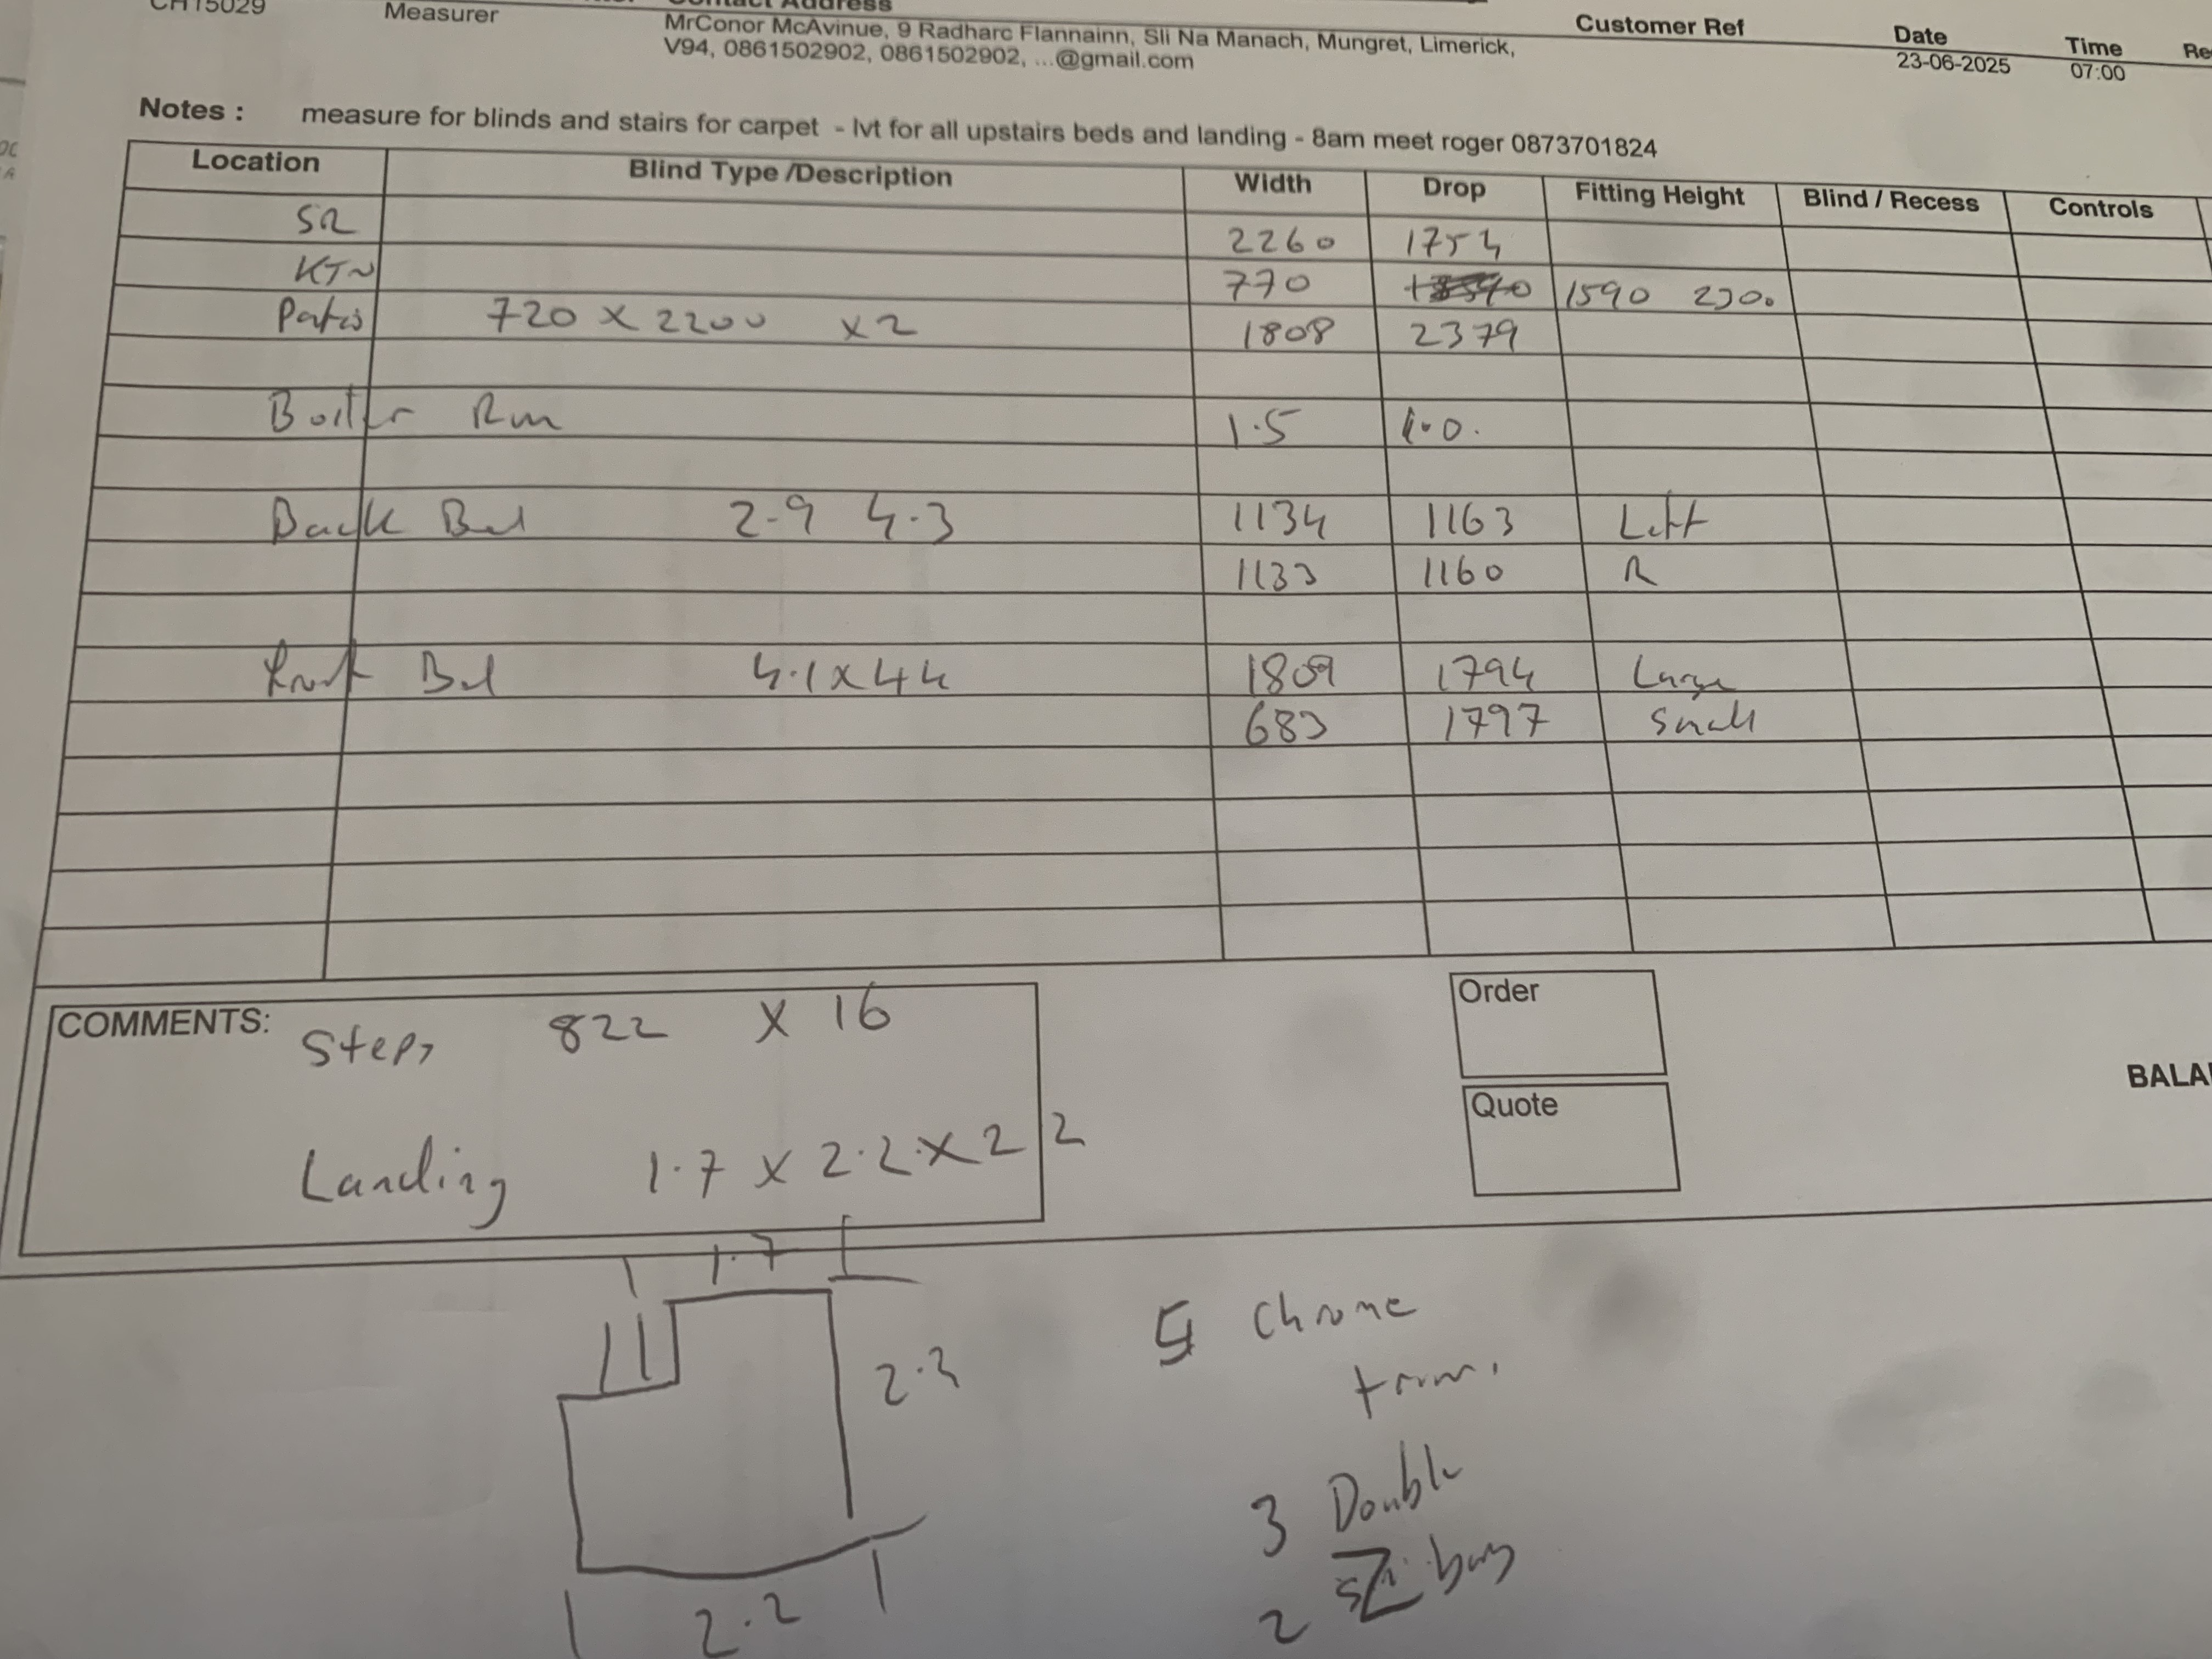 CH15029 Measurer Contact Address Customer Ref Date Time Re
MrConor McAvinue, 9 Radharc Flannainn, Sli Na Manach, Mungret, Limerick, 23-06-2025 07:00
V94, 0861502902, 0861502902, ...@gmail.com
Notes : measure for blinds and stairs for carpet - lvt for all upstairs beds and landing - 8am meet roger 0873701824
Location Blind Type /Description Width Drop Fitting Height Blind / Recess Controls
SR 2260 1754
KTN 770 1590 2300
Patio 720 x 2200 x2 1808 2379
Boiler Rm 1.5 1.0.
Back Bed 2.9 4.3 1134 1163 Left
1133 1160 R
Front Bed 4.1 x 44 1809 1794 Large
683 1797 Small
COMMENTS: Steps 822 x 16
Landing 1.7 x 2.2 x 2 2
Order
Quote
BALA
1.7
2.2
2.2
5 Chrome
trim.
3 Double
2